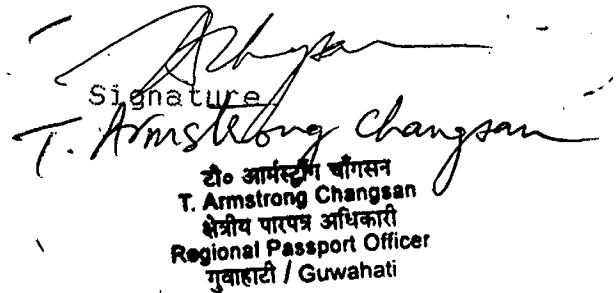 Signature
T. Armstrong Changsan
टी० आर्मस्ट्राँग चाँगसन
T. Armstrong Changsan
क्षेत्रीय पारपत्र अधिकारी
Regional Passport Officer
गुवाहाटी / Guwahati